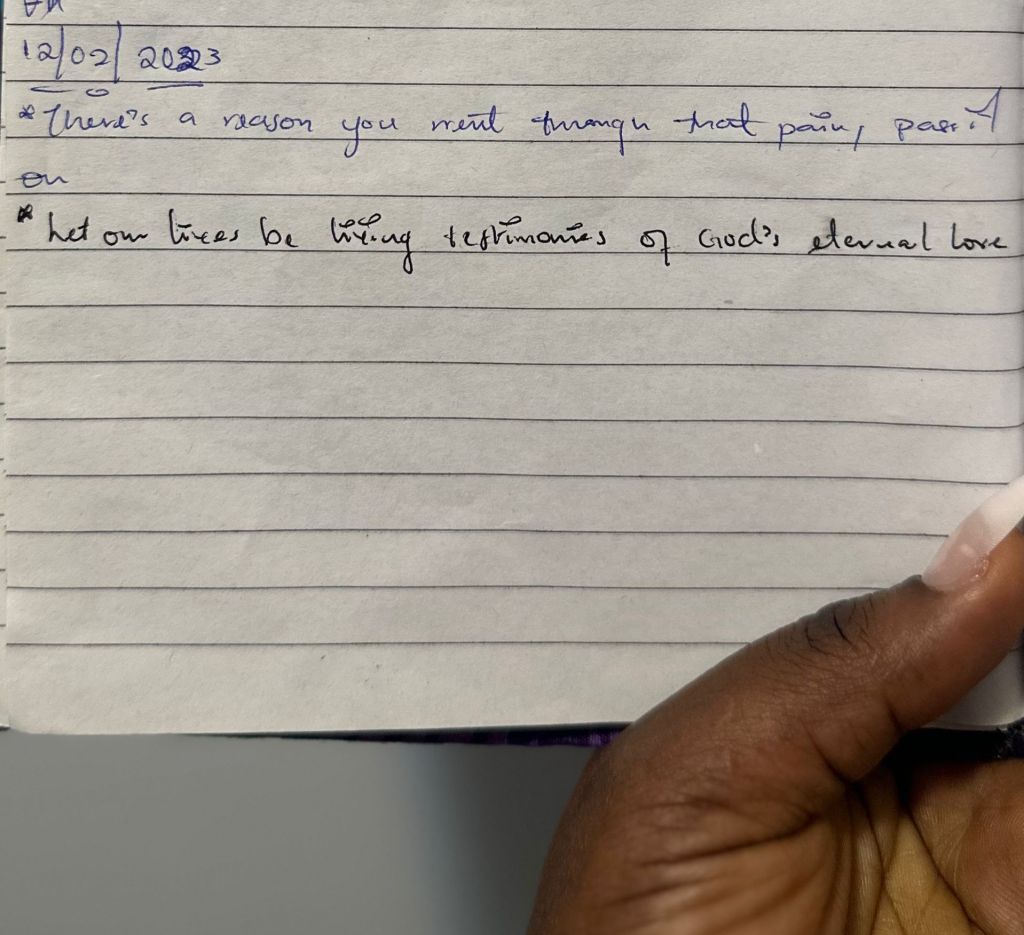 12/02/2023
* There's a reason you went through that pain, pass it
on
* Let our lives be living testimonies of God's eternal love